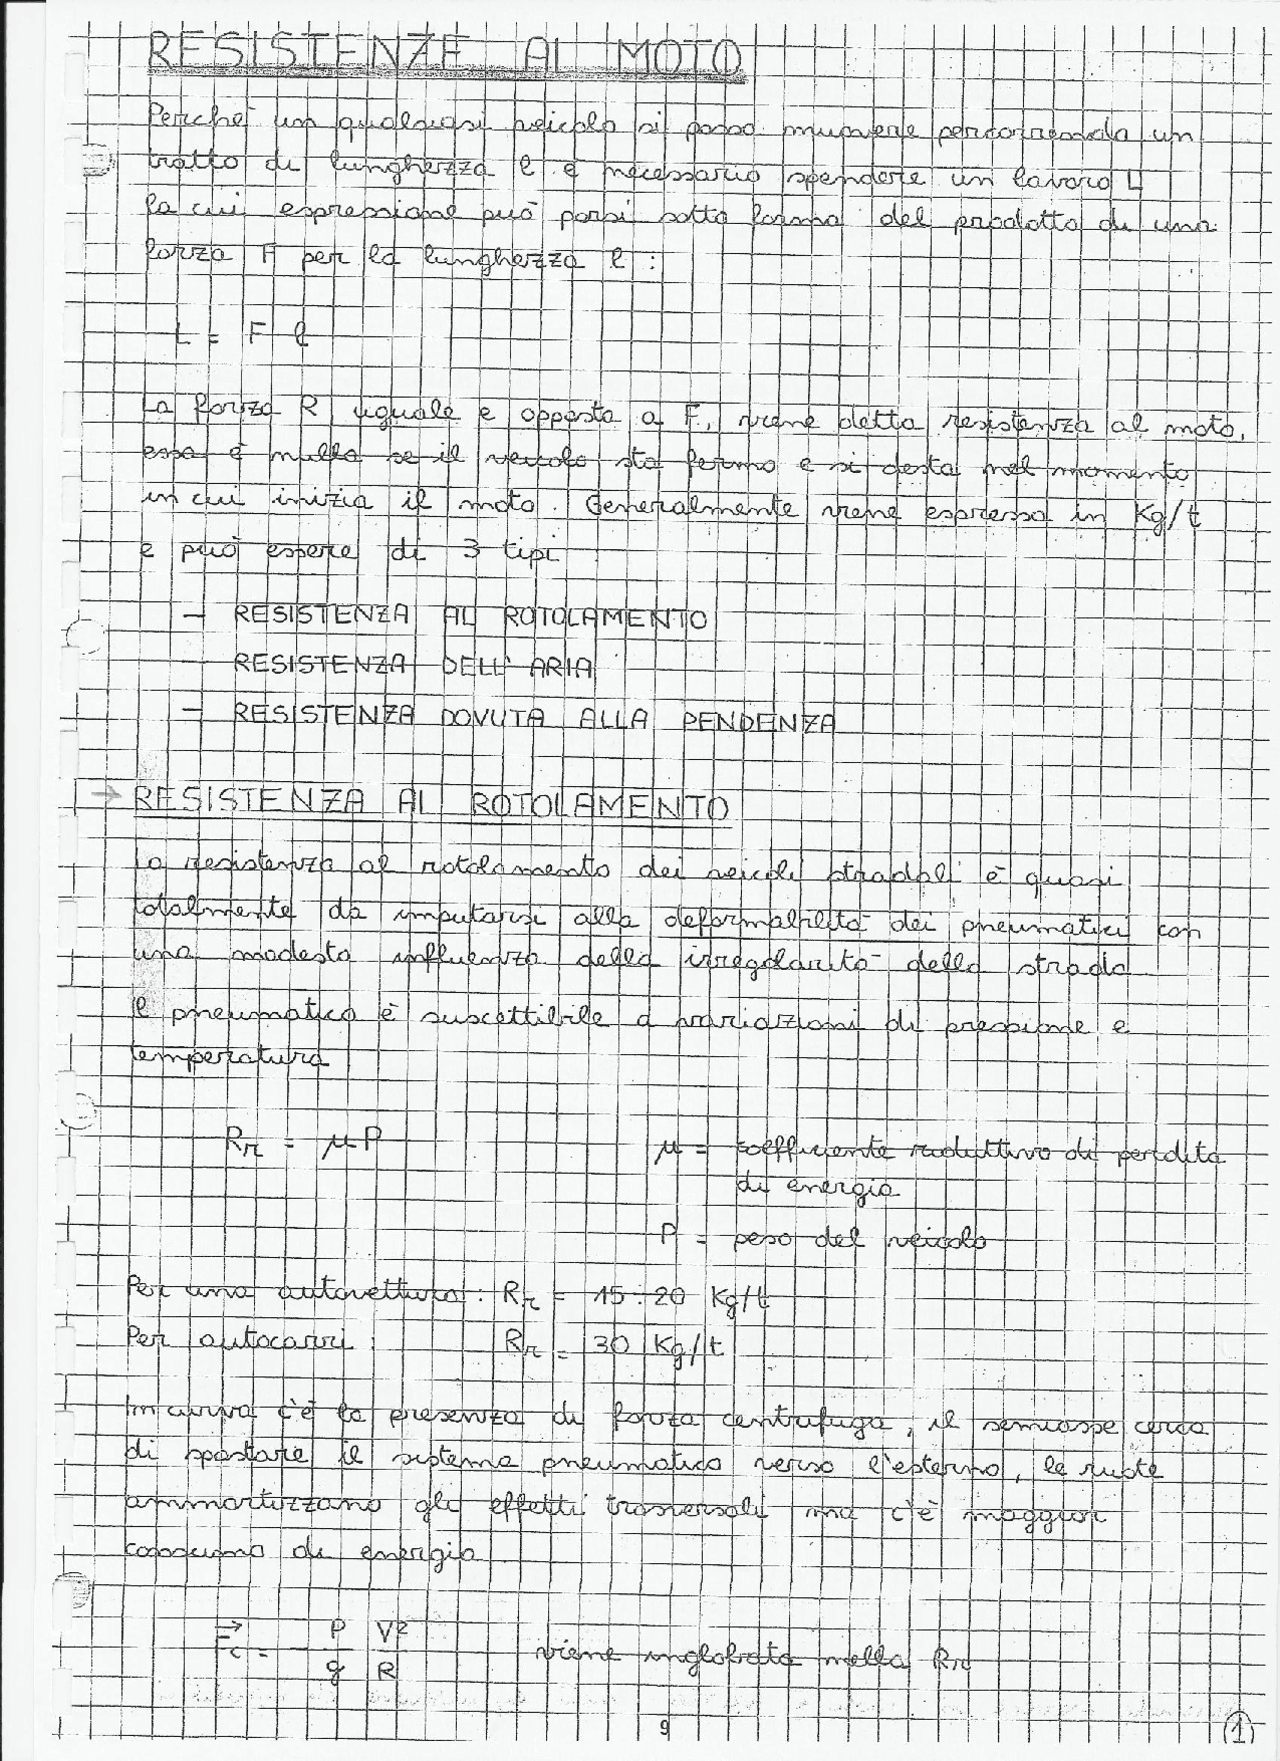 RESISTENZE AL MOTO
Perchè un qualsiasi veicolo si possa muovere percorrendo un
tratto di lunghezza l è necessario spendere un lavoro L
la cui espressione può porsi sotto forma del prodotto di una
forza F per la lunghezza l :
L = F l
La forza R, uguale e opposta a F, viene detta resistenza al moto,
essa è nulla se il veicolo sta fermo e si desta nel momento
in cui inizia il moto. Generalmente viene espressa in Kg/t
e può essere di 3 tipi
- RESISTENZA AL ROTOLAMENTO
- RESISTENZA DELL' ARIA
- RESISTENZA DOVUTA ALLA PENDENZA
→ RESISTENZA AL ROTOLAMENTO
La resistenza al rotolamento dei veicoli stradali è quasi
totalmente da imputarsi alla deformabilità dei pneumatici con
una modesta influenza della irregolarità della strada
Il pneumatico è suscettibile a variazioni di pressione e
temperatura
Rr = μP
μ = coefficiente riduttivo di perdita
di energia
P = peso del veicolo
Per una autovettura : Rr = 15 : 20 Kg/t
Per autocarri : Rr = 30 Kg/t
In curva c'è la presenza di forza centrifuga, il semiasse cerca
di spostare il sistema pneumatico verso l'esterno, le ruote
ammortizzano gli effetti trasversali ma c'è maggior
consumo di energia
Fc = P/g V²/R viene inglobata nella Rr
9
1